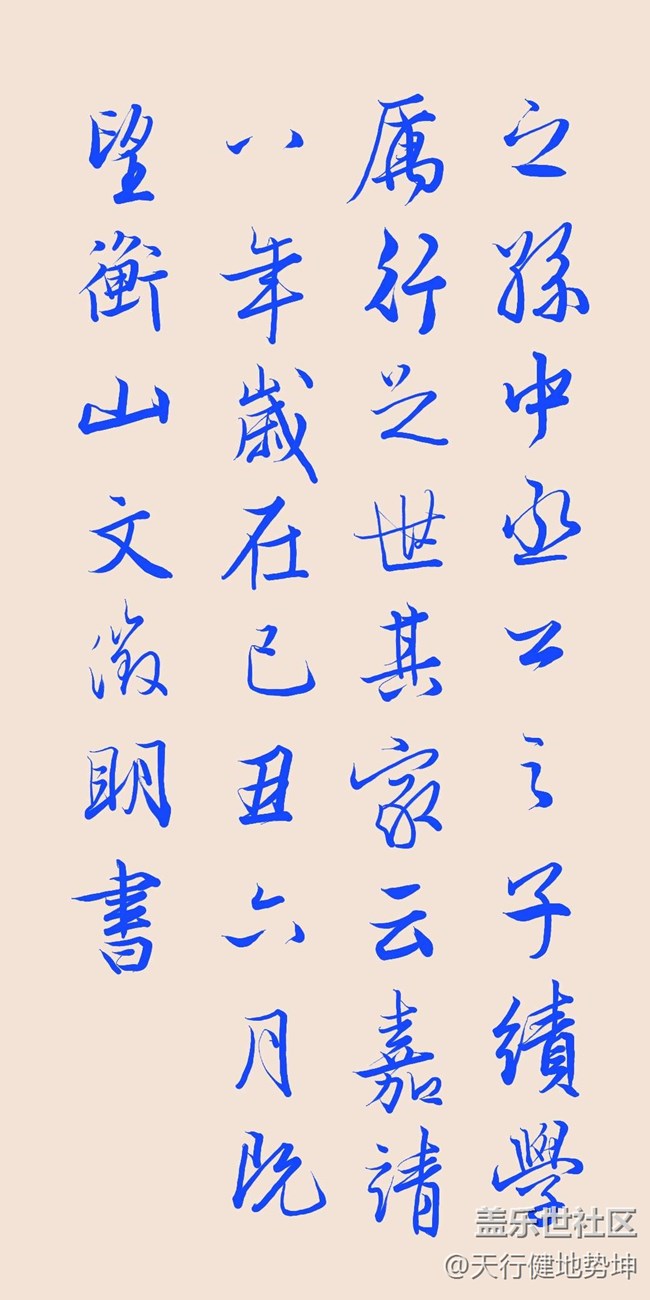 之孫中丞公之子績學
厲行之世其家云嘉請
八年歲在已丑六月既
望衡山文徵明書
盖乐世社区
@天行健地势坤